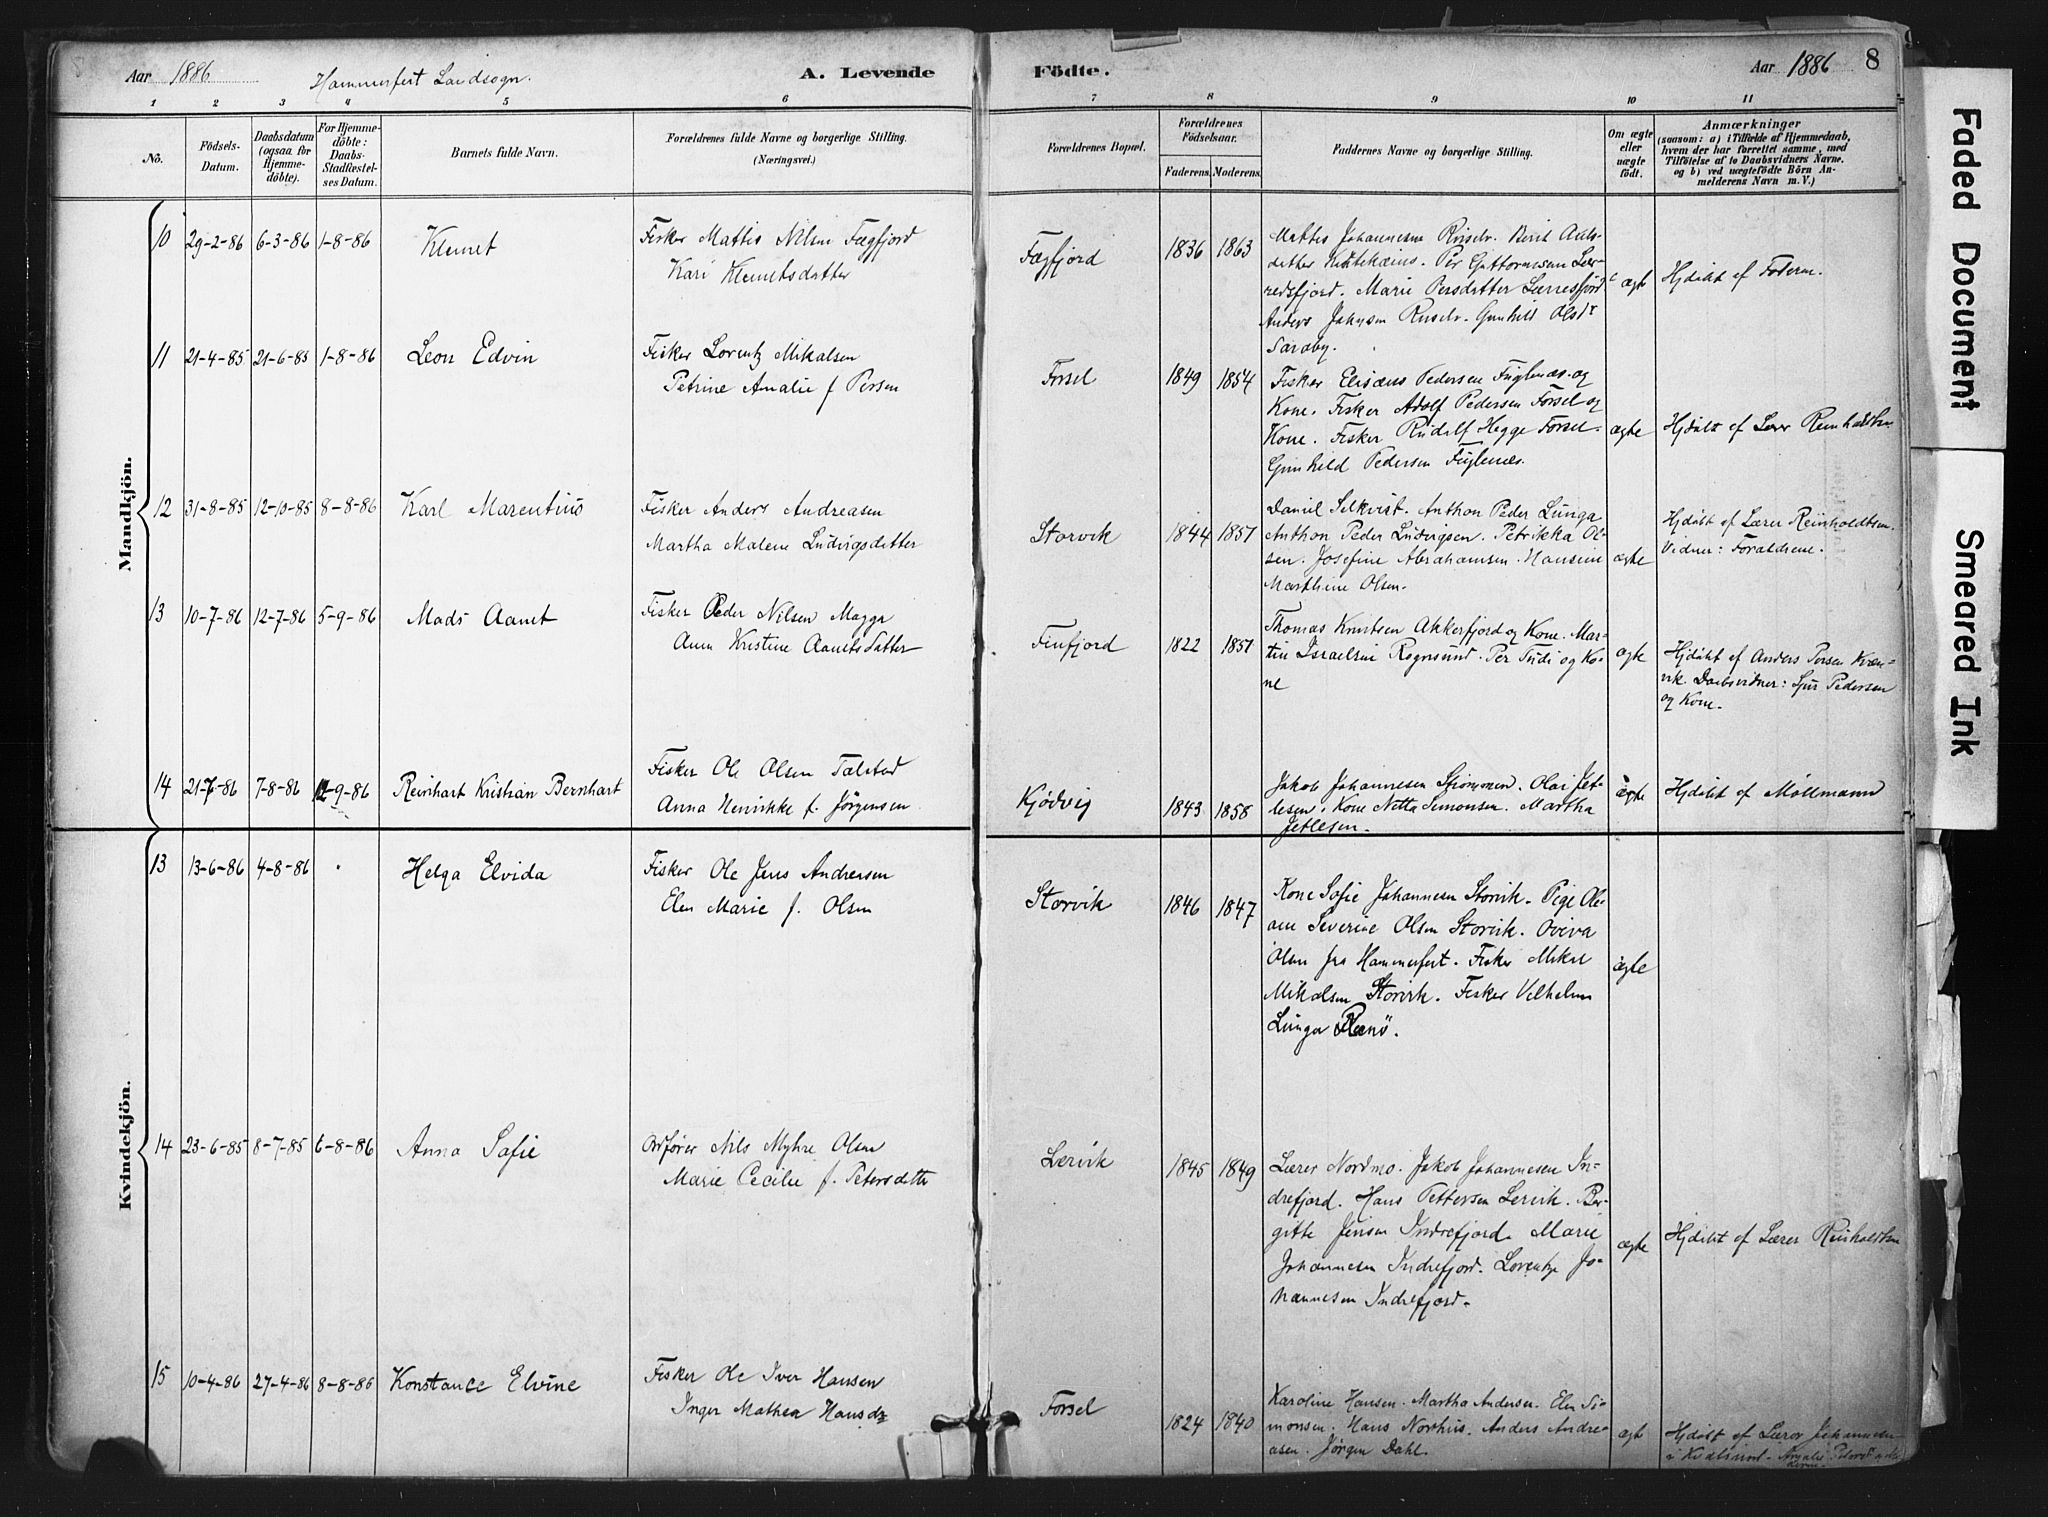 Aar 1886 Hammerfest Landsogn. A. Levende Födte. Aar 1886 8
1 2 3 4 5 6 7 8 9 10 11
No.
Födsels-
Datum.
Daabsdatum
(ogsaa for
Hjemme-
döbte).
For Hjemme-
döbte:
Daabs-
Stadfæstel-
ses Datum.
Barnets fulde Navn.
Forældrenes fulde Navne og borgerlige Stilling.
(Næringsvei.)
Forældrenes Bopæl.
Forældrenes
Födselsaar.
Faderens. Moderens.
Faddernes Navne og borgerlige Stilling.
Om ægte
eller
uægte
födt.
Anmærkninger
(saasom: a) i Tilfælde af Hjemmedaab,
hvem der har forrettet samme, med
Tilföielse af to Daabsvidners Navne.
og b) ved uægtefödte Börn An-
melderens Navn m. V.)
Mandkjön.
10 29-2-86 6-3-86 1-8-86 Klemet
Fisker Mattis Nilsen Fægfjord
Kari Klemetsdatter
Fægfjord 1836 1863
Mattis Johannesen Berit Anls-
datter Per Guttormsen Ler-
redsfjord. Marie Persdatter Lerresfjord
Anders Gunhild Olsdr
Saraby.
ægte
Hjdöbt af Faderen.
11 21-4-85 21-6-85 1-8-86 Leon Edvin
Fisker Lorentz Mikalsen
Petrine Amalie f Persen
Forsøl 1849 1854
Fisker Elisæus Pedersen Fuglenæs og
Kone. Fisker Adolf Pedersen Forsøl og
Kone. Fisker Rudolf Hegge Forsøl.
Gunhild Pedersen Fuglenæs.
ægte
Hjdöbt af Lærer Reinholdtsen
12 31-8-85 12-10-85 8-8-86 Karl Marentius
Fisker Anders Andreasen
Martha Malene Ludvigsdatter
Storvik 1844 1857
Daniel Selkvist. Anthon Peder Lunga
Anthon Peder Ludvigsen. Petrikka Ol-
sen. Josefine Abrahamsen. Hansine
Marthine Olsen.
ægte
Hjdöbt af Lærer Reinholdtsen.
Vidner: Forældrene.
13 10-7-86 12-7-86 5-9-86 Mads Aamet
Fisker Peder Nilsen Magge
Anen Kristine Aametsdatter
Finfjord 1822 1857
Thomas Knudsen Akkerfjord og Kone. Mar-
tin Israelsen Rognsund. Per Tudi og Ko-
ne
ægte
Hjdöbt af Anders Persen Kvæn-
vik. Daabsvidner: Sjur Pedersen
og Kone.
14 21-7-86 7-8-86 12-9-86 Reinhart Kristian Bernhart
Fisker Ole Olsen Talstad
Anna Henrikke f. Jörgensen
Kjödvig 1843 1858
Jakob Johannesen Simonsen. Olai Jet-
lesen. Kone Netta Simonsen. Martha
Jetlesen.
ægte
Hjdöbt af Møllmann
Kvindekjön.
13 13-6-86 4-8-86 Helga Elvida
Fisker Ole Jens Andreasen
Elen Marie f. Olsen
Storvik 1846 1847
Kone Sofie Johannesen Storvik. Pige Ole-
ane Severine Olsen Storvik. Oviva
Olsen fra Hammerfest. Fisker Mikal
Mikalsen Storvik. Fisker Vilhelm
Lunga Renö.
ægte
14 23-6-85 8-7-85 6-8-86 Anna Sofie
Ordfører Nils Myhre Olsen
Marie Cecilie f. Petersdatter
Lervik 1845 1849
Lærer Nordmo. Jakob Johannesen In-
drefjord. Hans Pettersen Lervik. Ber-
gitte Jensen Indrefjord. Marie
Johannesen Indrefjord. Lorentze Jo-
hannesen Indrefjord.
ægte
Hjdöbt af Lærer Reinholdtsen
15 10-4-86 27-4-86 8-8-86 Konstance Elvine
Fisker Ole Iver Hansen
Inger Mathea Hansdr
Forsøl 1824 1840
Karoline Hansen. Martha Andersen. Elen Si-
monsen. Hans Northus. Anders Andre-
asen. Jörgen Dahl.
ægte
Hjdöbt af Lærer Johannesen
i Kvalsund.
Faded Document
Smeared Ink